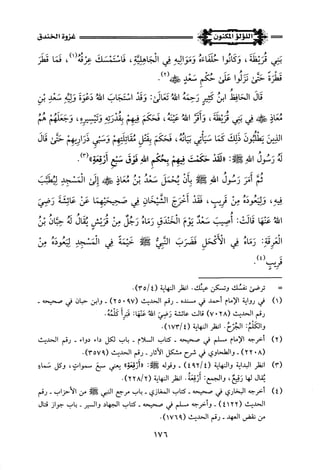 اللؤلؤ المكنون
غزوة الخندق
بَنِي قُرَيْظَةَ، وَكَانُوا حُلَفَاءَهُ وَمَوَالِيَهُ فِي الْجَاهِلِيَّةِ، فَاسْتَمْسَكَ عِرْقُهُ(١)، فَمَا قَطَرَ
قَطْرَةً حَتَّى نَزَلُوا عَلَى حُكْمِ سَعْدٍ ﷺ(٢).
قَالَ الْحَافِظُ ابنُ كَثِيرٍ رَحِمَهُ اللهُ تَعَالَى: وَقَدِ اسْتَجَابَ اللهُ دَعْوَةَ وَلِيِّهِ سَعْدِ بْنِ
مُعَاذٍ فِي بَنِي قُرَيْظَةَ، وَأَقَرَّ اللهُ عَيْنَهُ، فَحَكَمَ فِيهِمْ بِقُدْرَتِهِ وَتَيْسِيرِهِ، وَجَعَلَهُمْ هُمُ
الذِينَ يَطْلُبُونَ ذَلِكَ كَمَا سَيَأْتِي بَيَانُهُ، فَحَكَمَ بِقَتْلِ مُقَاتِلَتِهِمْ وَسَبْيِ ذَرَارِيهِمْ حَتَّى قَالَ
لَهُ رَسُولُ اللهِ ﷺ: «لَقَدْ حَكَمْتَ فِيهِمْ بِحُكْمِ اللهِ فَوْقَ سَبْعِ أَرْقِعَةٍ»(٣).
ثُمَّ أَمَرَ رَسُولُ اللهِ ﷺ بِأَنْ يُحْمَلَ سَعْدُ بْنُ مُعَاذٍ إِلَى الْمَسْجِدِ لِيُطَبَّبَ
فِيهِ، وَلِيَعُودَهُ مِنْ قَرِيبٍ، فَقَدْ أَخْرَجَ الشَّيْخَانِ فِي صَحِيحَيْهِمَا عَنْ عَائِشَةَ رَضِيَ
اللهُ عَنْهَا قَالَتْ: أُصِيبَ سَعْدٌ يَوْمَ الْخَنْدَقِ رَمَاهُ رَجُلٌ مِنْ قُرَيْشٍ يُقَالُ لَهُ حِبَّانُ بْنُ
الْعَرِقَةِ: رَمَاهُ فِي الْأَكْحَلِ فَضَرَبَ النَّبِيُّ ﷺ خَيْمَةً فِي الْمَسْجِدِ لِيَعُودَهُ مِنْ
قَرِيبٍ(٤).
= ترضى نفسُك وتسكُن عينُك. انظر النهاية (٣٥/٤)
(١) في رواية الإمام أحمد في مسنده - رقم الحديث (٢٥٠٩٧) - وابن حبان في صحيحه -
رقم الحديث (٧٠٢٨) قالت عائشة رَضِيَ اللهُ عَنْهَا: فَبَرَأَ كَلْمُهُ.
والكَلْمُ: الجُرْحُ. انظر النهاية (١٧٣/٤).
(٢) أخرجه الإمام مسلم في صحيحه - كتاب السلام - باب لكل داء دواء - رقم الحديث
(٢٢٠٨) - والطحاوي في شرح مشكل الآثار - رقم الحديث (٣٥٧٩).
(٣) انظر البداية والنهاية (٤٩٢/٤) - وقوله ﷺ: «أَرْقِعَة» يعني سبع سموات، وكل سَماءٍ
يُقال لها رَقِيع، والجمع: أَرْقِعَة. انظر النهاية (٢٢٨/٢).
(٤) أخرجه البخاري في صحيحه - كتاب المغازي - باب مرجع النبي ﷺ من الأحزاب - رقم
الحديث (٤١٢٢) - وأخرجه مسلم في صحيحه - كتاب الجهاد والسير - باب جواز قتال
من نقض العهد - رقم الحديث (١٧٦٩).
١٧٦